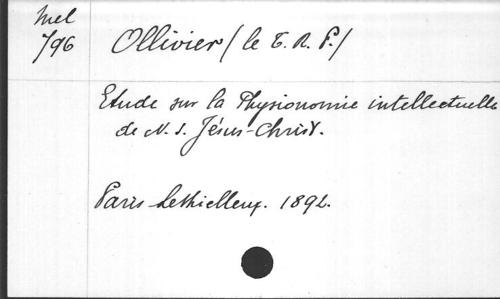 Mel
796
Ollivier (le T. R. P.)
Etude sur la Physionomie intellectuelle
de N. S. Jésus-Christ.
Paris Lethielleux. 1892.